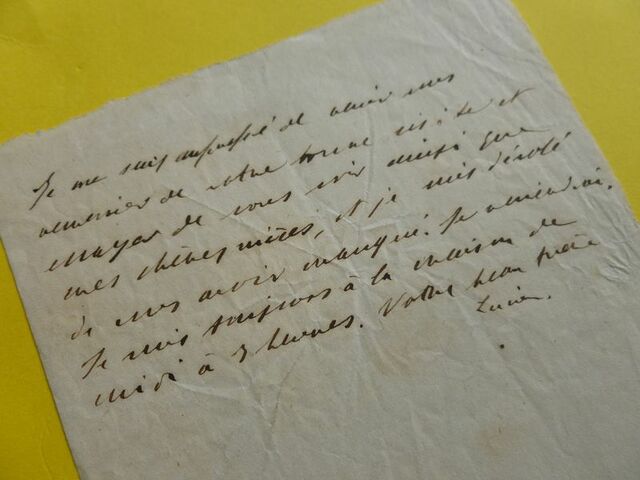 Je me suis empressé de venir vous
remercier de votre bonne visite et
essayer de vous voir ainsi que
mes chères nièces, et je suis désolé
de vous avoir manqué. Je reviendrai.
Je suis toujours à la maison de
midi à 3 heures. Votre beau frère
Lucien.